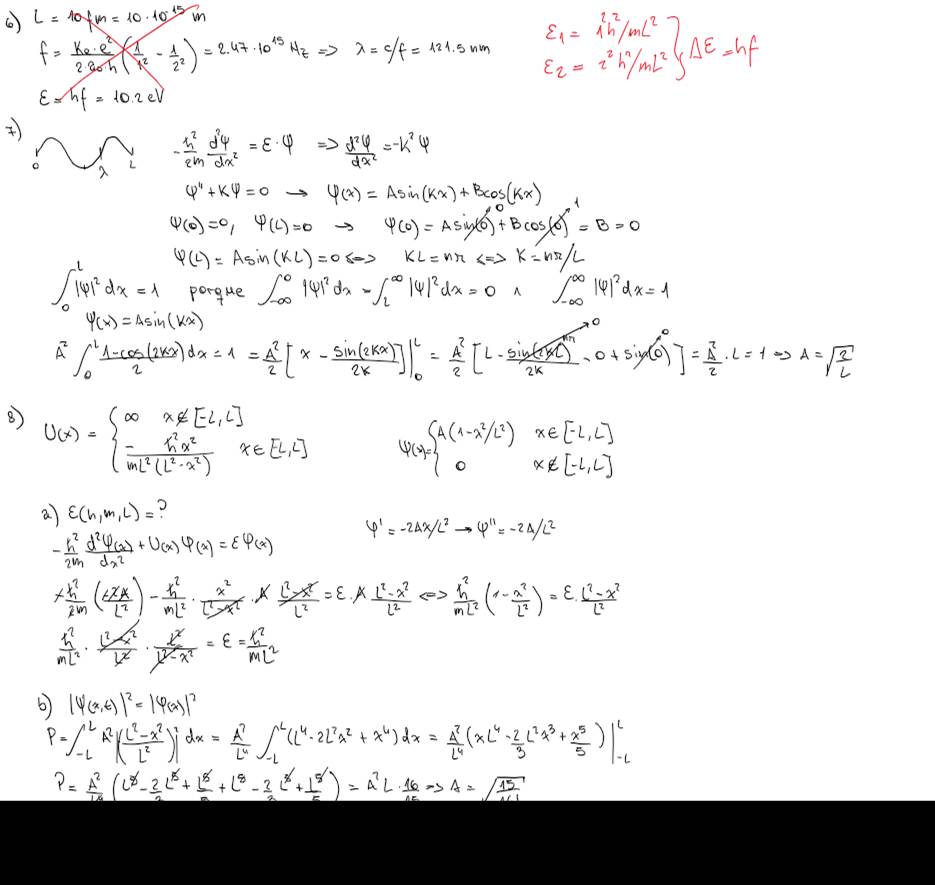 6) L = 10 fm = 10·10⁻¹⁵ m
f = K₀·e²/2·a₀·h (1/1² - 1/2²) = 2.47·10¹⁵ Hz => λ = c/f = 121.5 nm
ε = hf = 10.2 eV
ε₁ = 1²h²/mL²
ε₂ = 2²h²/mL² } ΔE = hf
7) 0 λ L
-ħ²/2m d²φ/dx² = ε·φ => d²φ/dx² = -K²φ
φ'' + Kφ = 0 → φ(x) = A sin(Kx) + B cos(Kx)
φ(0) = 0, φ(L) = 0 → φ(0) = A sin(0)↗0 + B cos(0)↗1 = B = 0
φ(L) = A sin(KL) = 0 <=> KL = nπ <=> K = nπ/L
∫₀ᴸ |φ|² dx = 1 porque ∫₋∞⁰ |φ|² dx = ∫_L^∞ |φ|² dx = 0 ∧ ∫₋∞^∞ |φ|² dx = 1
φ(x) = A sin(Kx)
A² ∫₀ᴸ (1-cos(2Kx))/2 dx = 1 = A²/2 [x - sin(2Kx)/2K]|₀ᴸ = A²/2 [L - sin(2KL)/2K↗0 - 0 + sin(0)↗0] = A²/2 · L = 1 => A = √(2/L)
8) U(x) = { ∞ x∉[-L,L]
- ħ²x²/mL²(L²-x²) x∈[-L,L]
φ(x) = { A(1-x²/L²) x∈[-L,L]
0 x∉[-L,L]
a) ε(h,m,L) = ?
φ' = -2Ax/L² → φ'' = -2A/L²
-ħ²/2m d²φ(x)/dx² + U(x)φ(x) = εφ(x)
-ħ²/2m (-2A/L²) - ħ²/mL² · x²/(L²-x²) · A (L²-x²)/L² = ε·A (L²-x²)/L² <=> ħ²/mL² (1 - x²/L²) = ε·(L²-x²)/L²
ħ²/mL² · (L²-x²)/L² · L²/(L²-x²) = ε = ħ²/mL²
b) |Ψ(x,t)|² = |φ(x)|²
P = ∫₋ᴸᴸ A² |(L²-x²)/L²|² dx = A²/L⁴ ∫₋ᴸᴸ (L⁴ - 2L²x² + x⁴) dx = A²/L⁴ (xL⁴ - 2/3 L²x³ + x⁵/5)|₋ᴸᴸ
P = A² (L⁵ - 2 L⁵ + L⁵ + L⁵ - 2 L⁵ + L⁵/5) = A² L · 16 => A = √15